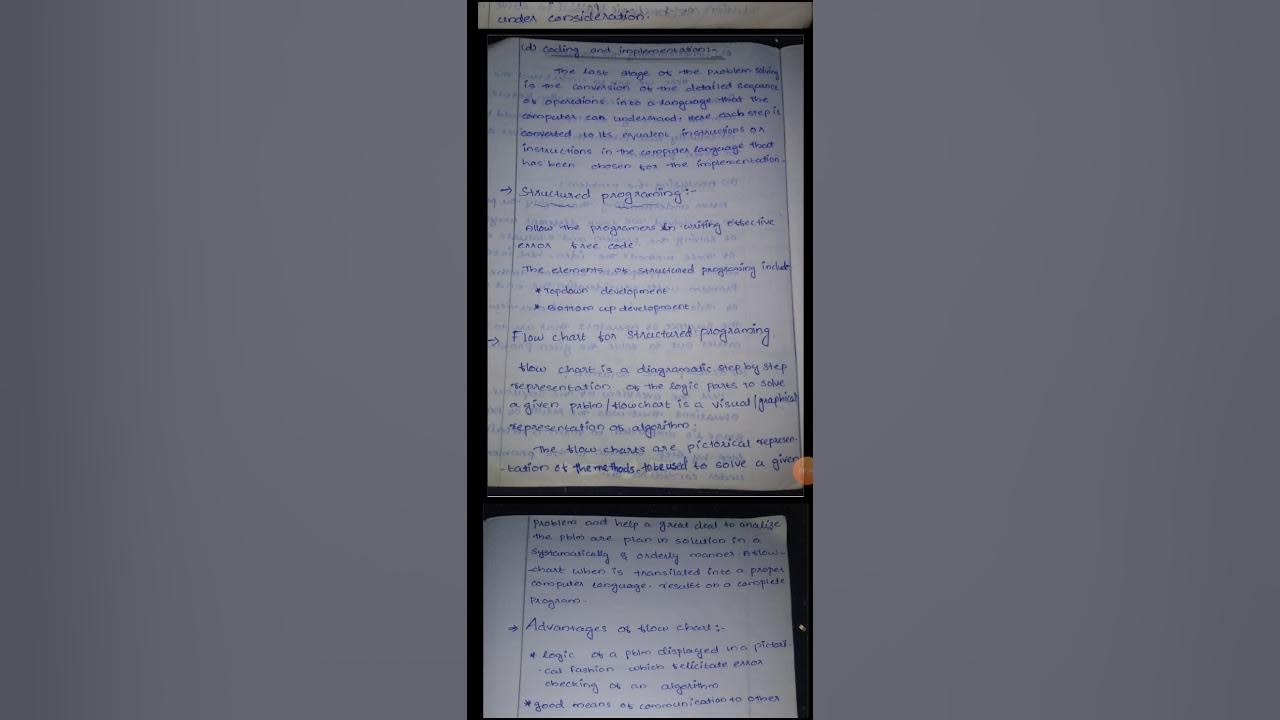 under consideration.
(d) coding and implementation:-
The last stage of the problem solving
is the conversion of the detailed sequence
of operations into a language that the
computer can understand. Here each step is
converted to its equalent instructions or
instructions in the computer language that
has been chosen for the implementation.
→ Structured programing:-
Allow the programers in writing effective
error free code.
The elements of structured programing include
* Topdown development
* Bottom up development
→ Flow chart for structured programing.
flow chart is a diagramatic step by step
representation of the logic parts to solve
a given prblm/flowchart is a visual/graphical
representation of algorithm.
The flow charts are pictorical represen-
-tation of the methods to be used to solve a given
problem and help a great deal to analize
the pblm are plan in solution in a
systamatically & orderly manner. A flow-
-chart when is transilated into a proper
computer language. results on a complete
program.
→ Advantages of flow chart:-
* logic of a pblm displayed in a pictori-
-cal fashion which felicitate error
checking of an algorithm
* good means of communication to other